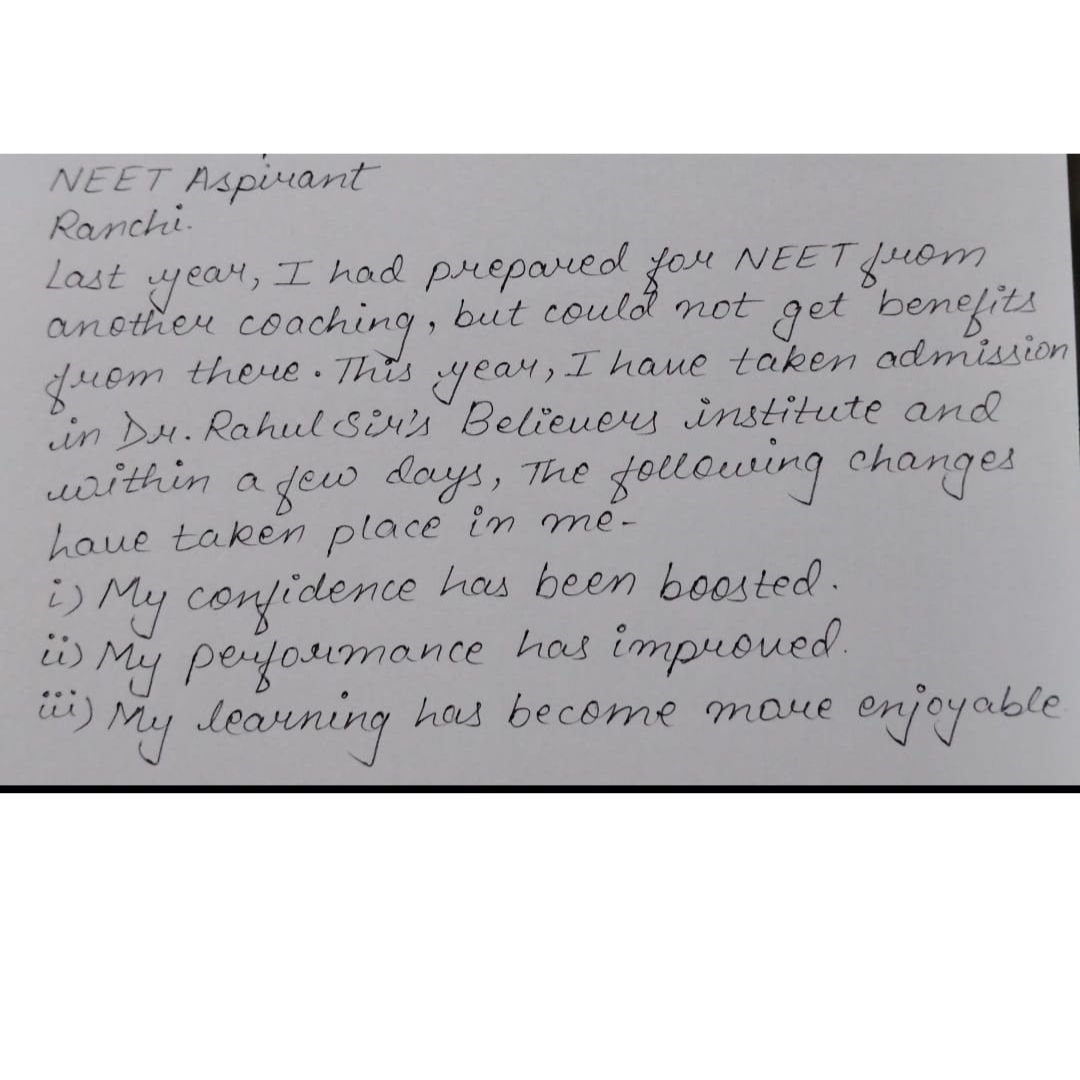 NEET Aspirant
Ranchi.
Last year, I had prepared for NEET from
another coaching, but could not get benefits
from there. This year, I have taken admission
in Dr. Rahul Sir's Believers institute and
within a few days, The following changes
have taken place in me-
i) My confidence has been boosted.
ii) My performance has improved.
iii) My learning has become more enjoyable